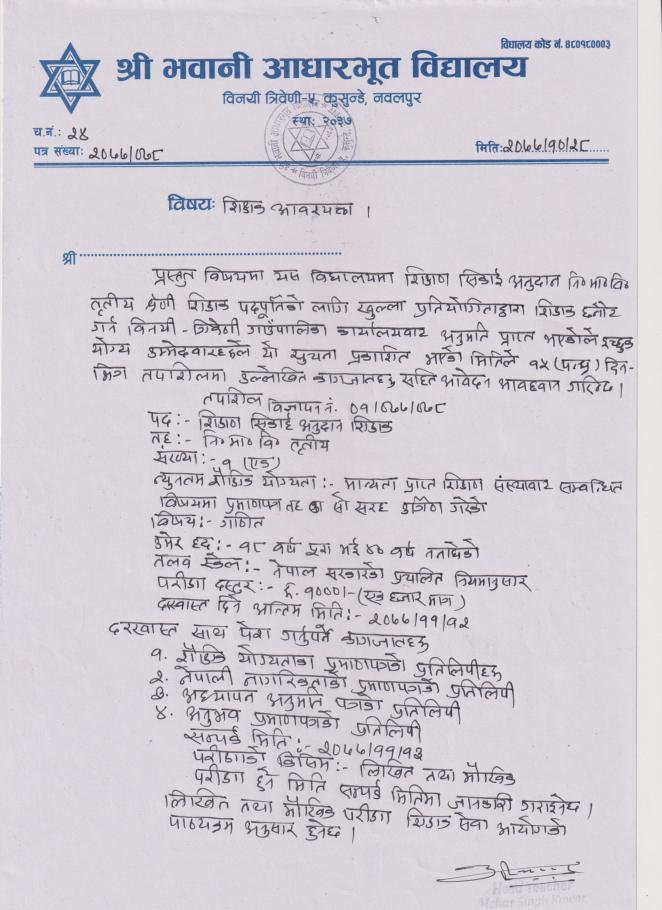 विद्यालय कोड नं. ४८०१८०००३
श्री भवानी आधारभूत विद्यालय
विनयी त्रिवेणी-५, कुसुन्डे, नवलपुर
स्था: २०३७
च.नं.: २४
पत्र संख्या: २०७७/०७८
मिति: २०७७/१०/२८
विषय: शिक्षक आवश्यक्ता ।
श्री
प्रस्तुत विषयमा यस विद्यालयमा शिक्षण सिकाई अनुदान नि०मा०वि०
तृतीय श्रेणी शिक्षक पदपूर्तिको लागि खुल्ला प्रतियोगिताद्वारा शिक्षक छनौट
गर्न विनयी - त्रिवेणी गाउँपालिका कार्यालयवाट अनुमति प्राप्त भएकोले इच्छुक
योग्य उम्मेदवारहरुले यो सुचना प्रकाशित भएको मितिले १५ (पन्ध्र) दिन-
भित्र तपाशिलमा उल्लेखित कागजातहरु सहित आवेदन आवहवान गरिन्छ ।
तपाशिल
विज्ञापन नं. ०१/०७७/०७८
पद :- शिक्षण सिकाई अनुदान शिक्षक
तह :- नि०मा०वि० तृतीय
संख्या :- १ (एक)
न्युनतम शैक्षिक योग्यता :- मान्यता प्राप्त शिक्षण संस्थावाट सम्बन्धित
विषयमा प्रमाणपत्र तह वा सो सरह उर्तिण गरेको
विषय :- गणित
उमेर हद :- १८ वर्ष पुरा भई ४० वर्ष ननाघेको
तलव स्केल :- नेपाल सरकारको प्रचलित नियमानुसार
परीक्षा दस्तुर :- रु. १०००।- (एक हजार मात्र)
दरखास्त दिने अन्तिम मिति :- २०७७/११/१२
दरखास्त साथ पेश गर्नुपर्ने कागजातहरु
१. शैक्षिक योग्यताका प्रमाणपत्रको प्रतिलिपीहरु
२. नेपाली नागरिकताको प्रमाणपत्रको प्रतिलिपी
३. अध्यापन अनुमति पत्रको प्रतिलिपी
४. अनुभव प्रमाणपत्रको प्रतिलिपी
सम्पर्क मिति :- २०७७/११/१३
परीक्षाको किसिम :- लिखित तथा मौखिक
परीक्षा हुने मिति सम्पर्क मितिमा जानकारी गराइनेछ ।
लिखित तथा मौखिक परीक्षा शिक्षक सेवा आयोगको
पाठ्यक्रम अनुसार हुनेछ ।
Head Teacher
Mehar Singh Kuwar